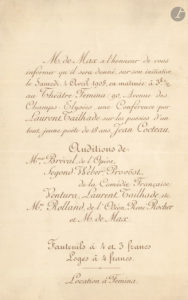 M. de Max a l'honneur de vous
informer qu'il sera donné, sur son initiative
le Samedi 4 Avril 1908, en matinée à 3h ½
au Théâtre Femina, 90, Avenue des
Champs Elysées une Conférence par
Laurent Tailhade sur les poésies d'un
tout jeune poète de 18 ans, Jean Cocteau.
Auditions de
Mmes Bréval de l'Opéra,
Segond Weber, Provost,
de la Comédie Française
Ventura, Laurent Tailhade, etc.
Mrs Rolland, de l'Odéon, René Rocher
et M. de Max
Fauteuils à 4 et 3 francs
Loges à 4 francs.
Location à Femina.